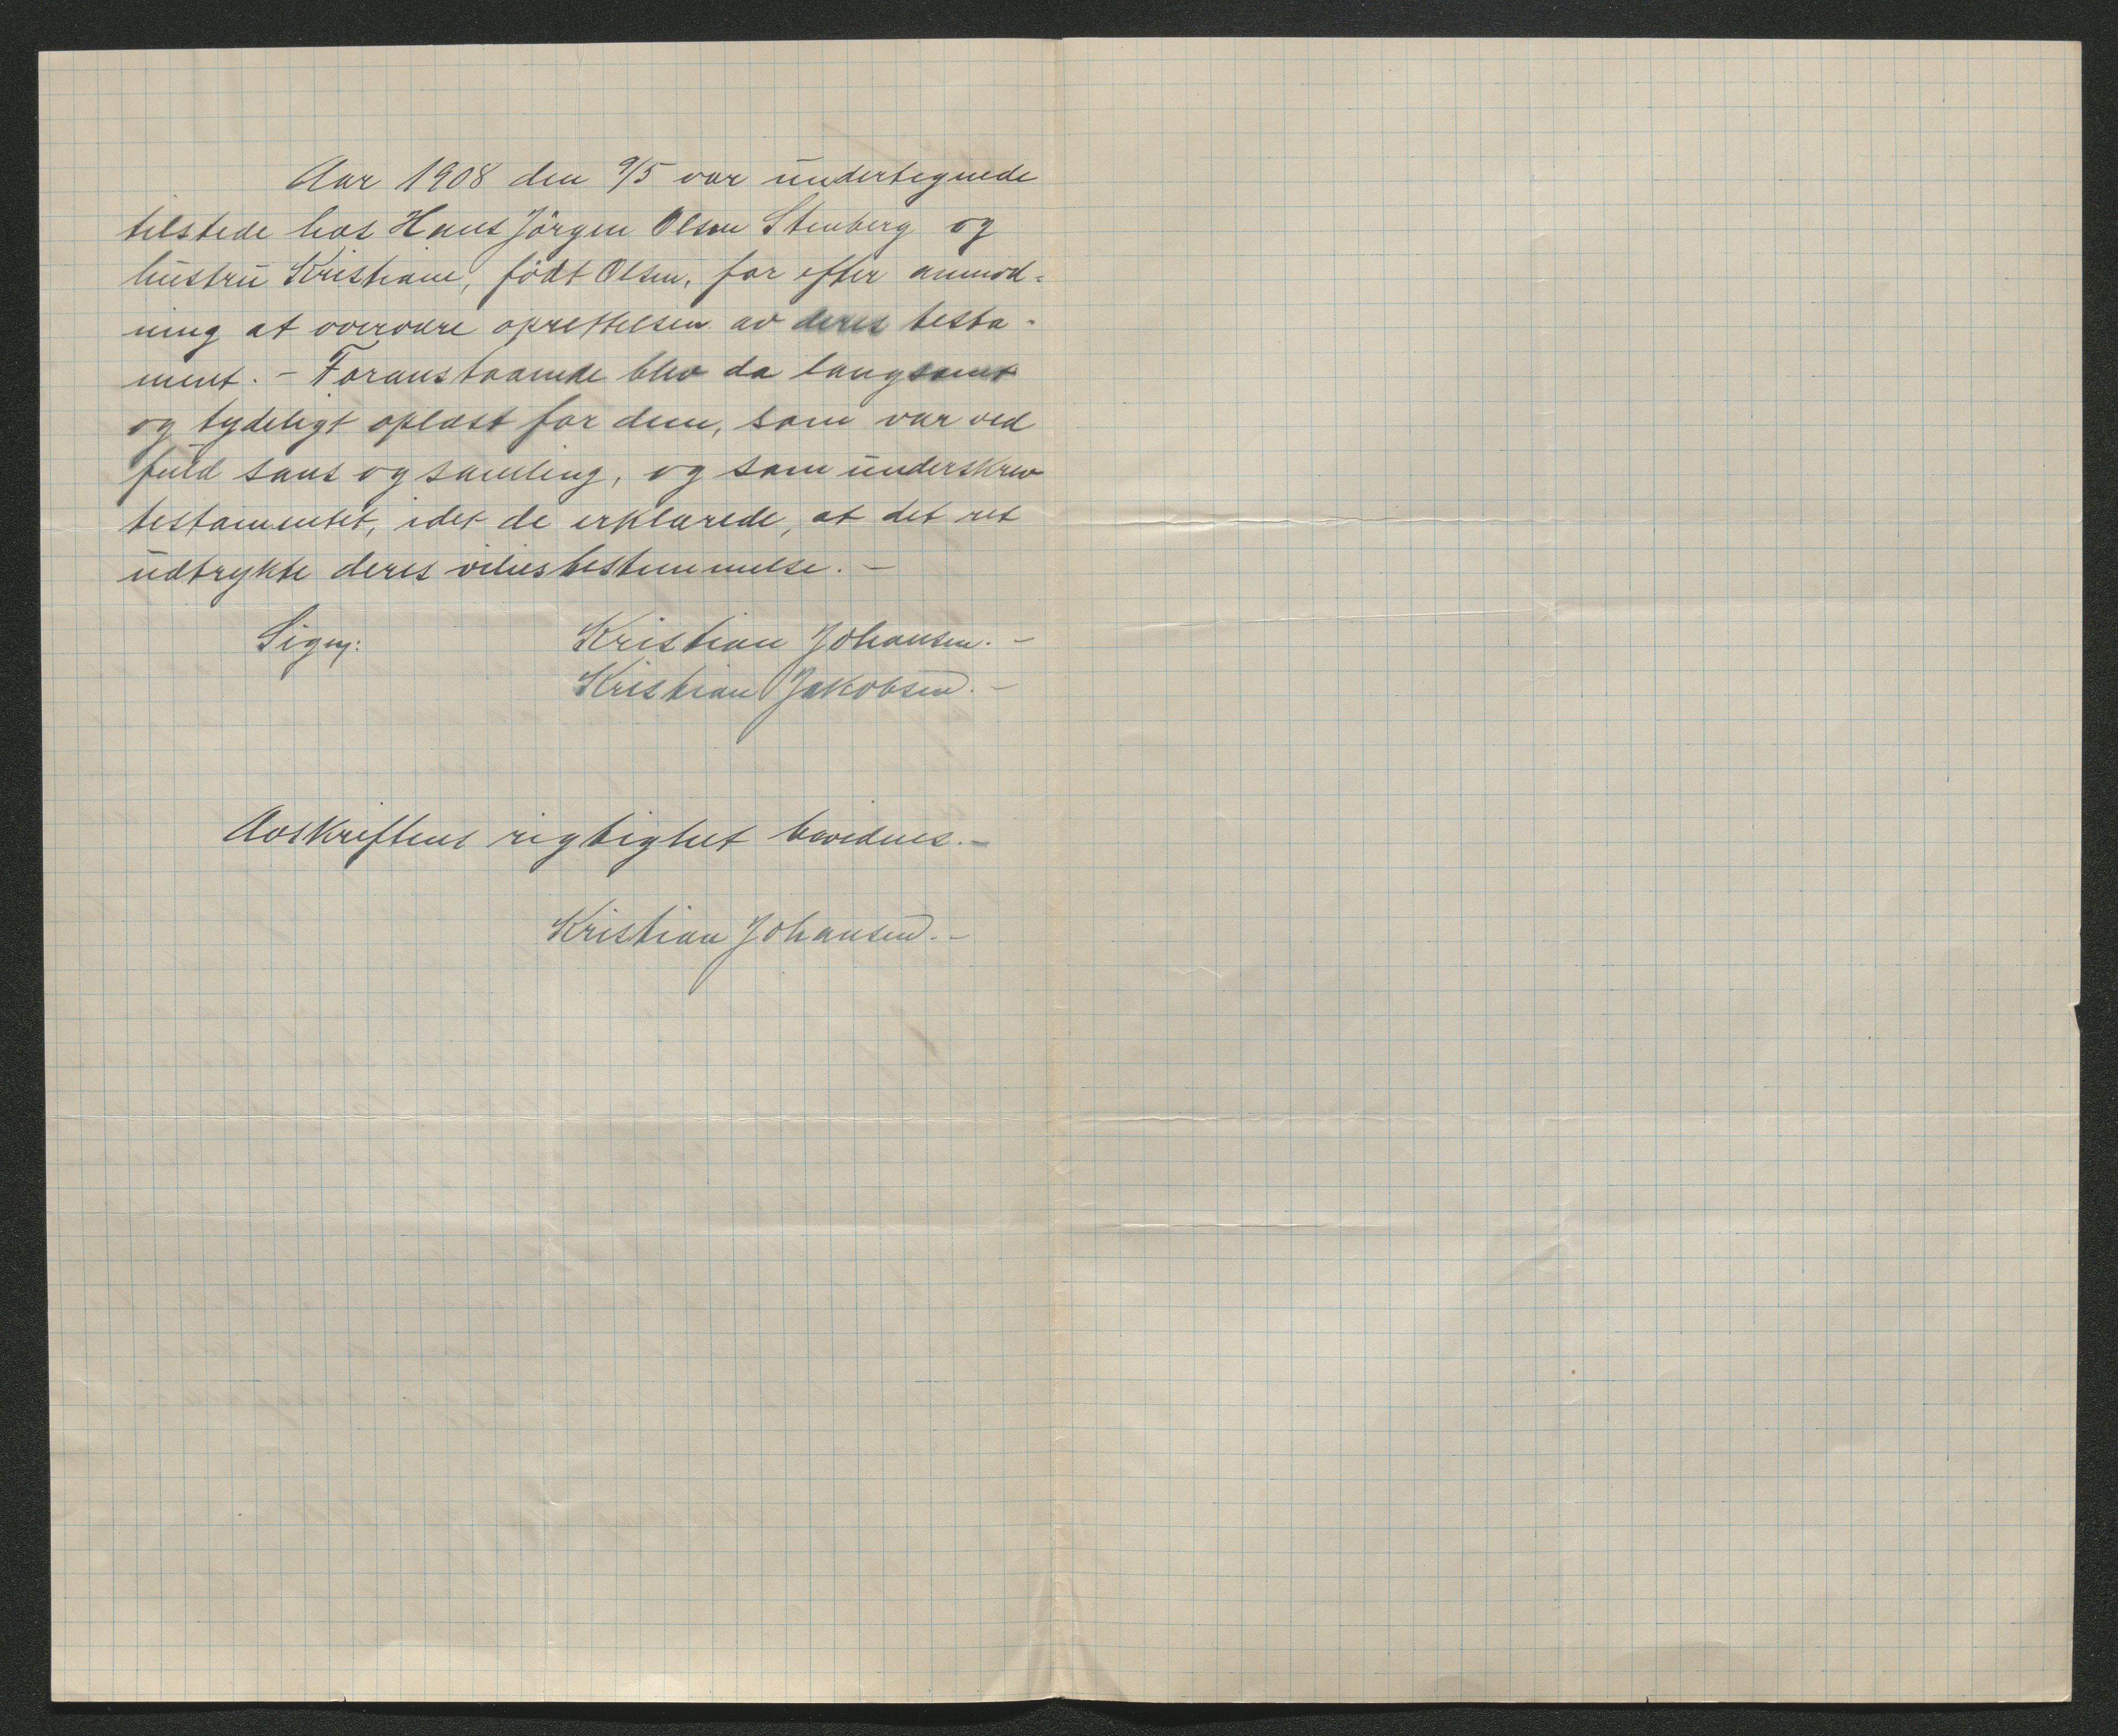 Aar 1908 den 9/5 var undertegnede
tilstede hos Hans Jörgen Olsen Stenberg og
hustru Kristiane, födt Olsen, for efter anmod-
ning at overvære oprettelsen av deres testa-
ment. - Foranstaaende blev da langsomt
og tydeligt oplæst for dem, som var ved
fuld sans og samling, og som underskrev
testamentet, idet de erklærede, at det ret
udtrykte deres viliesbestemmelse. -
Sign: Kristian Johansen. -
Kristian Jakobsen. -
Avskriftens rigtighet bevidnes. -
Kristian Johansen. -